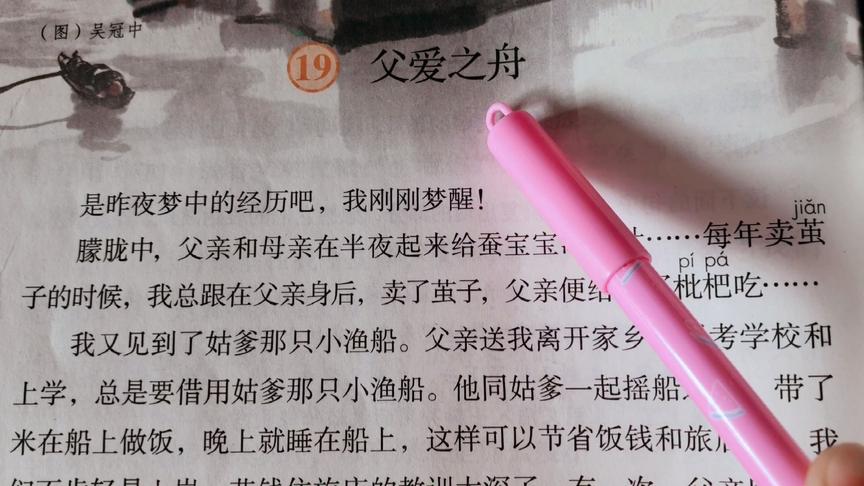 （图）吴冠中
19 父爱之舟
是昨夜梦中的经历吧，我刚刚梦醒！
jiǎn
朦胧中，父亲和母亲在半夜起来给蚕宝宝……每年卖茧
pí pá
子的时候，我总跟在父亲身后，卖了茧子，父亲便给枇杷吃……
我又见到了姑爹那只小渔船。父亲送我离开家乡考学校和
上学，总是要借用姑爹那只小渔船。他同姑爹一起摇船带了
米在船上做饭，晚上就睡在船上，这样可以节省饭钱和旅我